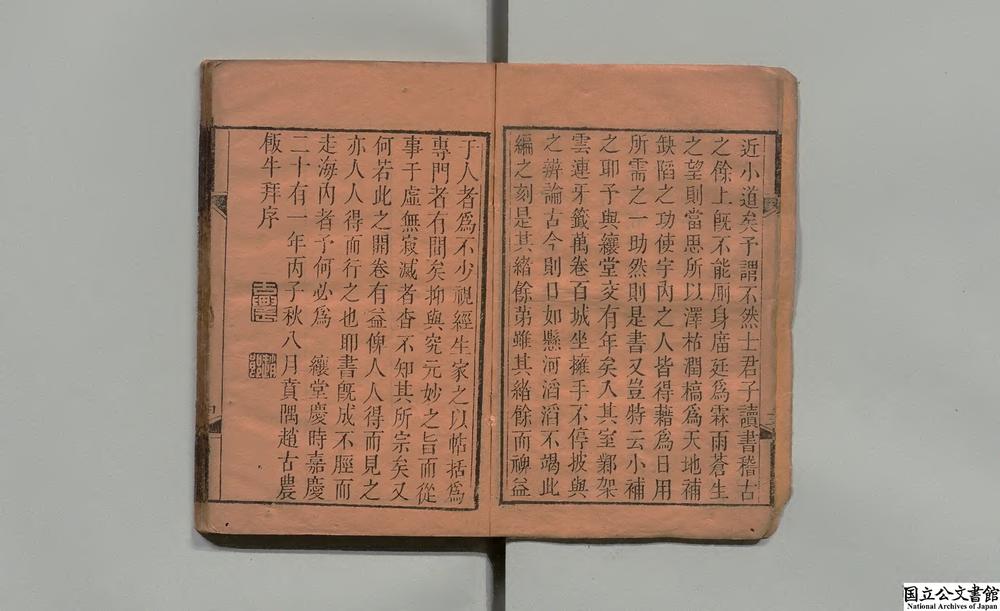 近小道矣予謂不然士君子讀書稽古
之餘上旣不能廁身廣廷爲霖雨蒼生
之望則當思所以澤枯潤槁爲天地補
缺䧟之功使宇內之人皆得藉爲日用
所需之一助然則是書又豈特云小補
之耶予與纕堂交有年矣入其室鄴架
雲連牙籤萬卷百城坐擁手不停披與
之辨論古今則口如懸河滔滔不竭此
編之刻是其緒餘苐雖其緒餘而裨益
于人者爲不少視經生家之以帖括爲
專門者有間矣抑與究元妙之旨而從
事于虛無寂滅者杳不知其所宗矣又
何若此之開卷有益俾人人得而見之
亦人人得而行之也耶書旣成不脛而
走海內者予何必爲　纕堂慶時嘉慶
二十有一年丙子秋八月賁隅趙古農
飯牛拜序
国立公文書館
National Archives of Japan